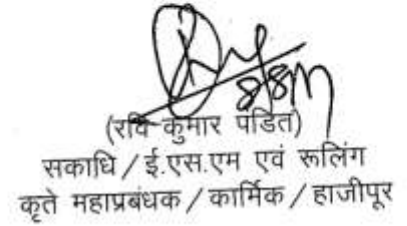 (रवि कुमार पंडित)
सकाधि / ई.एस.एम एवं रूलिंग
कृते महाप्रबंधक / कार्मिक / हाजीपूर